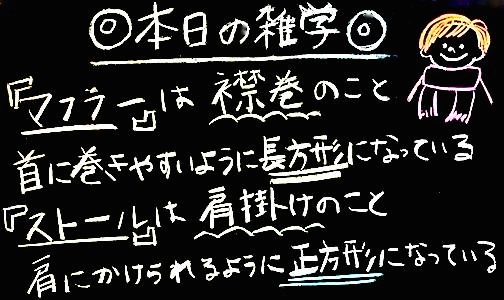 ◎本日の雑学◎
『マフラー』は 襟巻のこと
首に巻きやすいように長方形になっている
『ストール』は 肩掛けのこと
肩にかけられるように正方形になっている